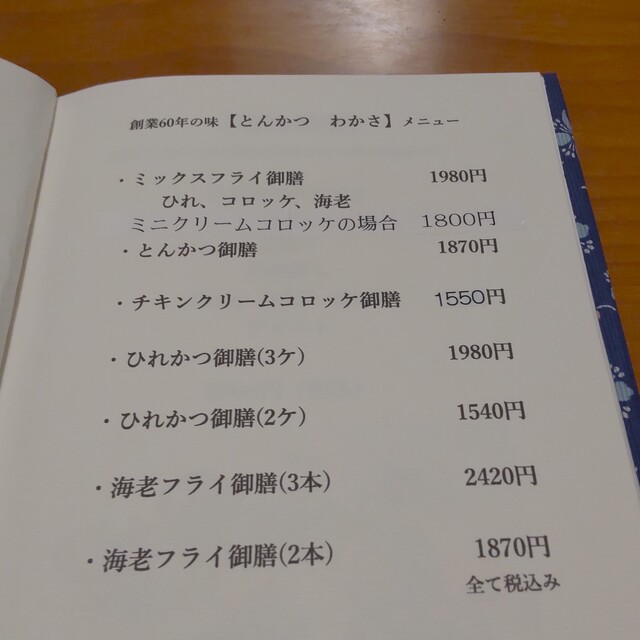 創業60年の味【とんかつ　わかさ】メニュー
・ミックスフライ御膳　1980円
ひれ、コロッケ、海老
ミニクリームコロッケの場合　1800円
・とんかつ御膳　1870円
・チキンクリームコロッケ御膳　1550円
・ひれかつ御膳(3ケ)　1980円
・ひれかつ御膳(2ケ)　1540円
・海老フライ御膳(3本)　2420円
・海老フライ御膳(2本)　1870円
全て税込み